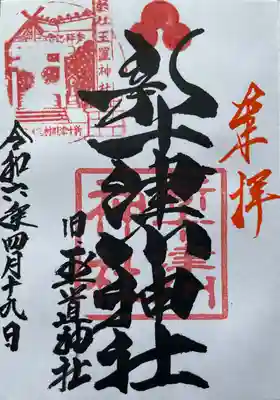 奉拝
新十津川神社
旧玉置神社
令和六年四月十九日
玉置神社
新十津川
神社